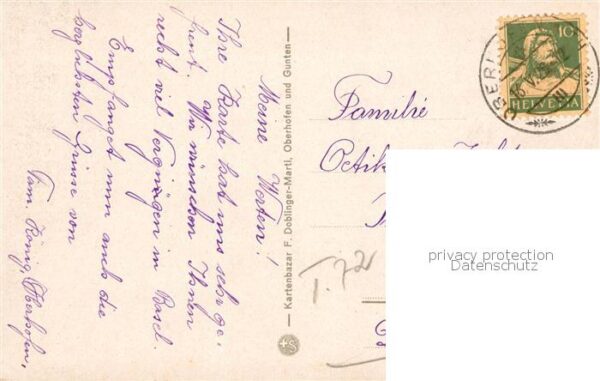 Meine Werten!
Ihre Karte hat uns sehr ge-
freut. Wir wünschen Ihnen
recht viel Vergnügen in Basel.
Empfanget nun auch die
herzlichsten Grüsse von
Fam. König, Oberhofen.
Kartenbazar F. Doblinger-Marti, Oberhofen und Gunten
Familie
10
HELVETIA
privacy protection
Datenschutz
T. 72